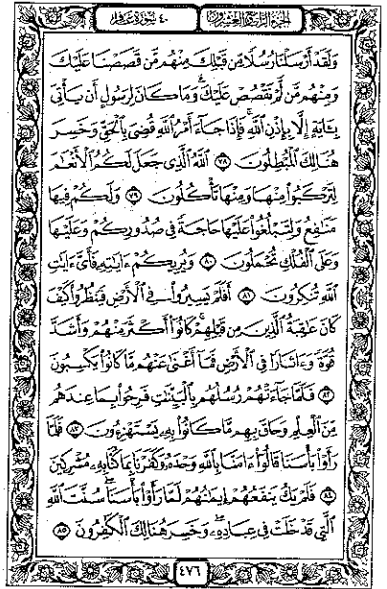 الجزء الرابع والعشرون
٤٠ سورة غافر
وَلَقَدْ أَرْسَلْنَا رُسُلًا مِّن قَبْلِكَ مِنْهُم مَّن قَصَصْنَا عَلَيْكَ
وَمِنْهُم مَّن لَّمْ نَقْصُصْ عَلَيْكَ ۗ وَمَا كَانَ لِرَسُولٍ أَن يَأْتِىَ
بِـَٔايَةٍ إِلَّا بِإِذْنِ اللَّهِ ۚ فَإِذَا جَآءَ أَمْرُ اللَّهِ قُضِىَ بِالْحَقِّ وَخَسِرَ
هُنَالِكَ الْمُبْطِلُونَ ٧٨ اللَّهُ الَّذِى جَعَلَ لَكُمُ الْأَنْعَٰمَ
لِتَرْكَبُوا۟ مِنْهَا وَمِنْهَا تَأْكُلُونَ ٧٩ وَلَكُمْ فِيهَا
مَنَٰفِعُ وَلِتَبْلُغُوا۟ عَلَيْهَا حَاجَةً فِى صُدُورِكُمْ وَعَلَيْهَا
وَعَلَى الْفُلْكِ تُحْمَلُونَ ٨٠ وَيُرِيكُمْ ءَايَٰتِهِۦ فَأَىَّ ءَايَٰتِ
اللَّهِ تُنكِرُونَ ٨١ أَفَلَمْ يَسِيرُوا۟ فِى الْأَرْضِ فَيَنظُرُوا۟ كَيْفَ
كَانَ عَٰقِبَةُ الَّذِينَ مِن قَبْلِهِمْ ۚ كَانُوٓا۟ أَكْثَرَ مِنْهُمْ وَأَشَدَّ
قُوَّةً وَءَاثَارًا فِى الْأَرْضِ فَمَآ أَغْنَىٰ عَنْهُم مَّا كَانُوا۟ يَكْسِبُونَ
٨٢ فَلَمَّا جَآءَتْهُمْ رُسُلُهُم بِالْبَيِّنَٰتِ فَرِحُوا۟ بِمَا عِندَهُم
مِّنَ الْعِلْمِ وَحَاقَ بِهِم مَّا كَانُوا۟ بِهِۦ يَسْتَهْزِءُونَ ٨٣ فَلَمَّا
رَأَوْا۟ بَأْسَنَا قَالُوٓا۟ ءَامَنَّا بِاللَّهِ وَحْدَهُۥ وَكَفَرْنَا بِمَا كُنَّا بِهِۦ مُشْرِكِينَ
٨٤ فَلَمْ يَكُ يَنفَعُهُمْ إِيمَٰنُهُمْ لَمَّا رَأَوْا۟ بَأْسَنَا ۖ سُنَّتَ اللَّهِ
الَّتِى قَدْ خَلَتْ فِى عِبَادِهِۦ ۖ وَخَسِرَ هُنَالِكَ الْكَٰفِرُونَ ٨٥
٤٧٦